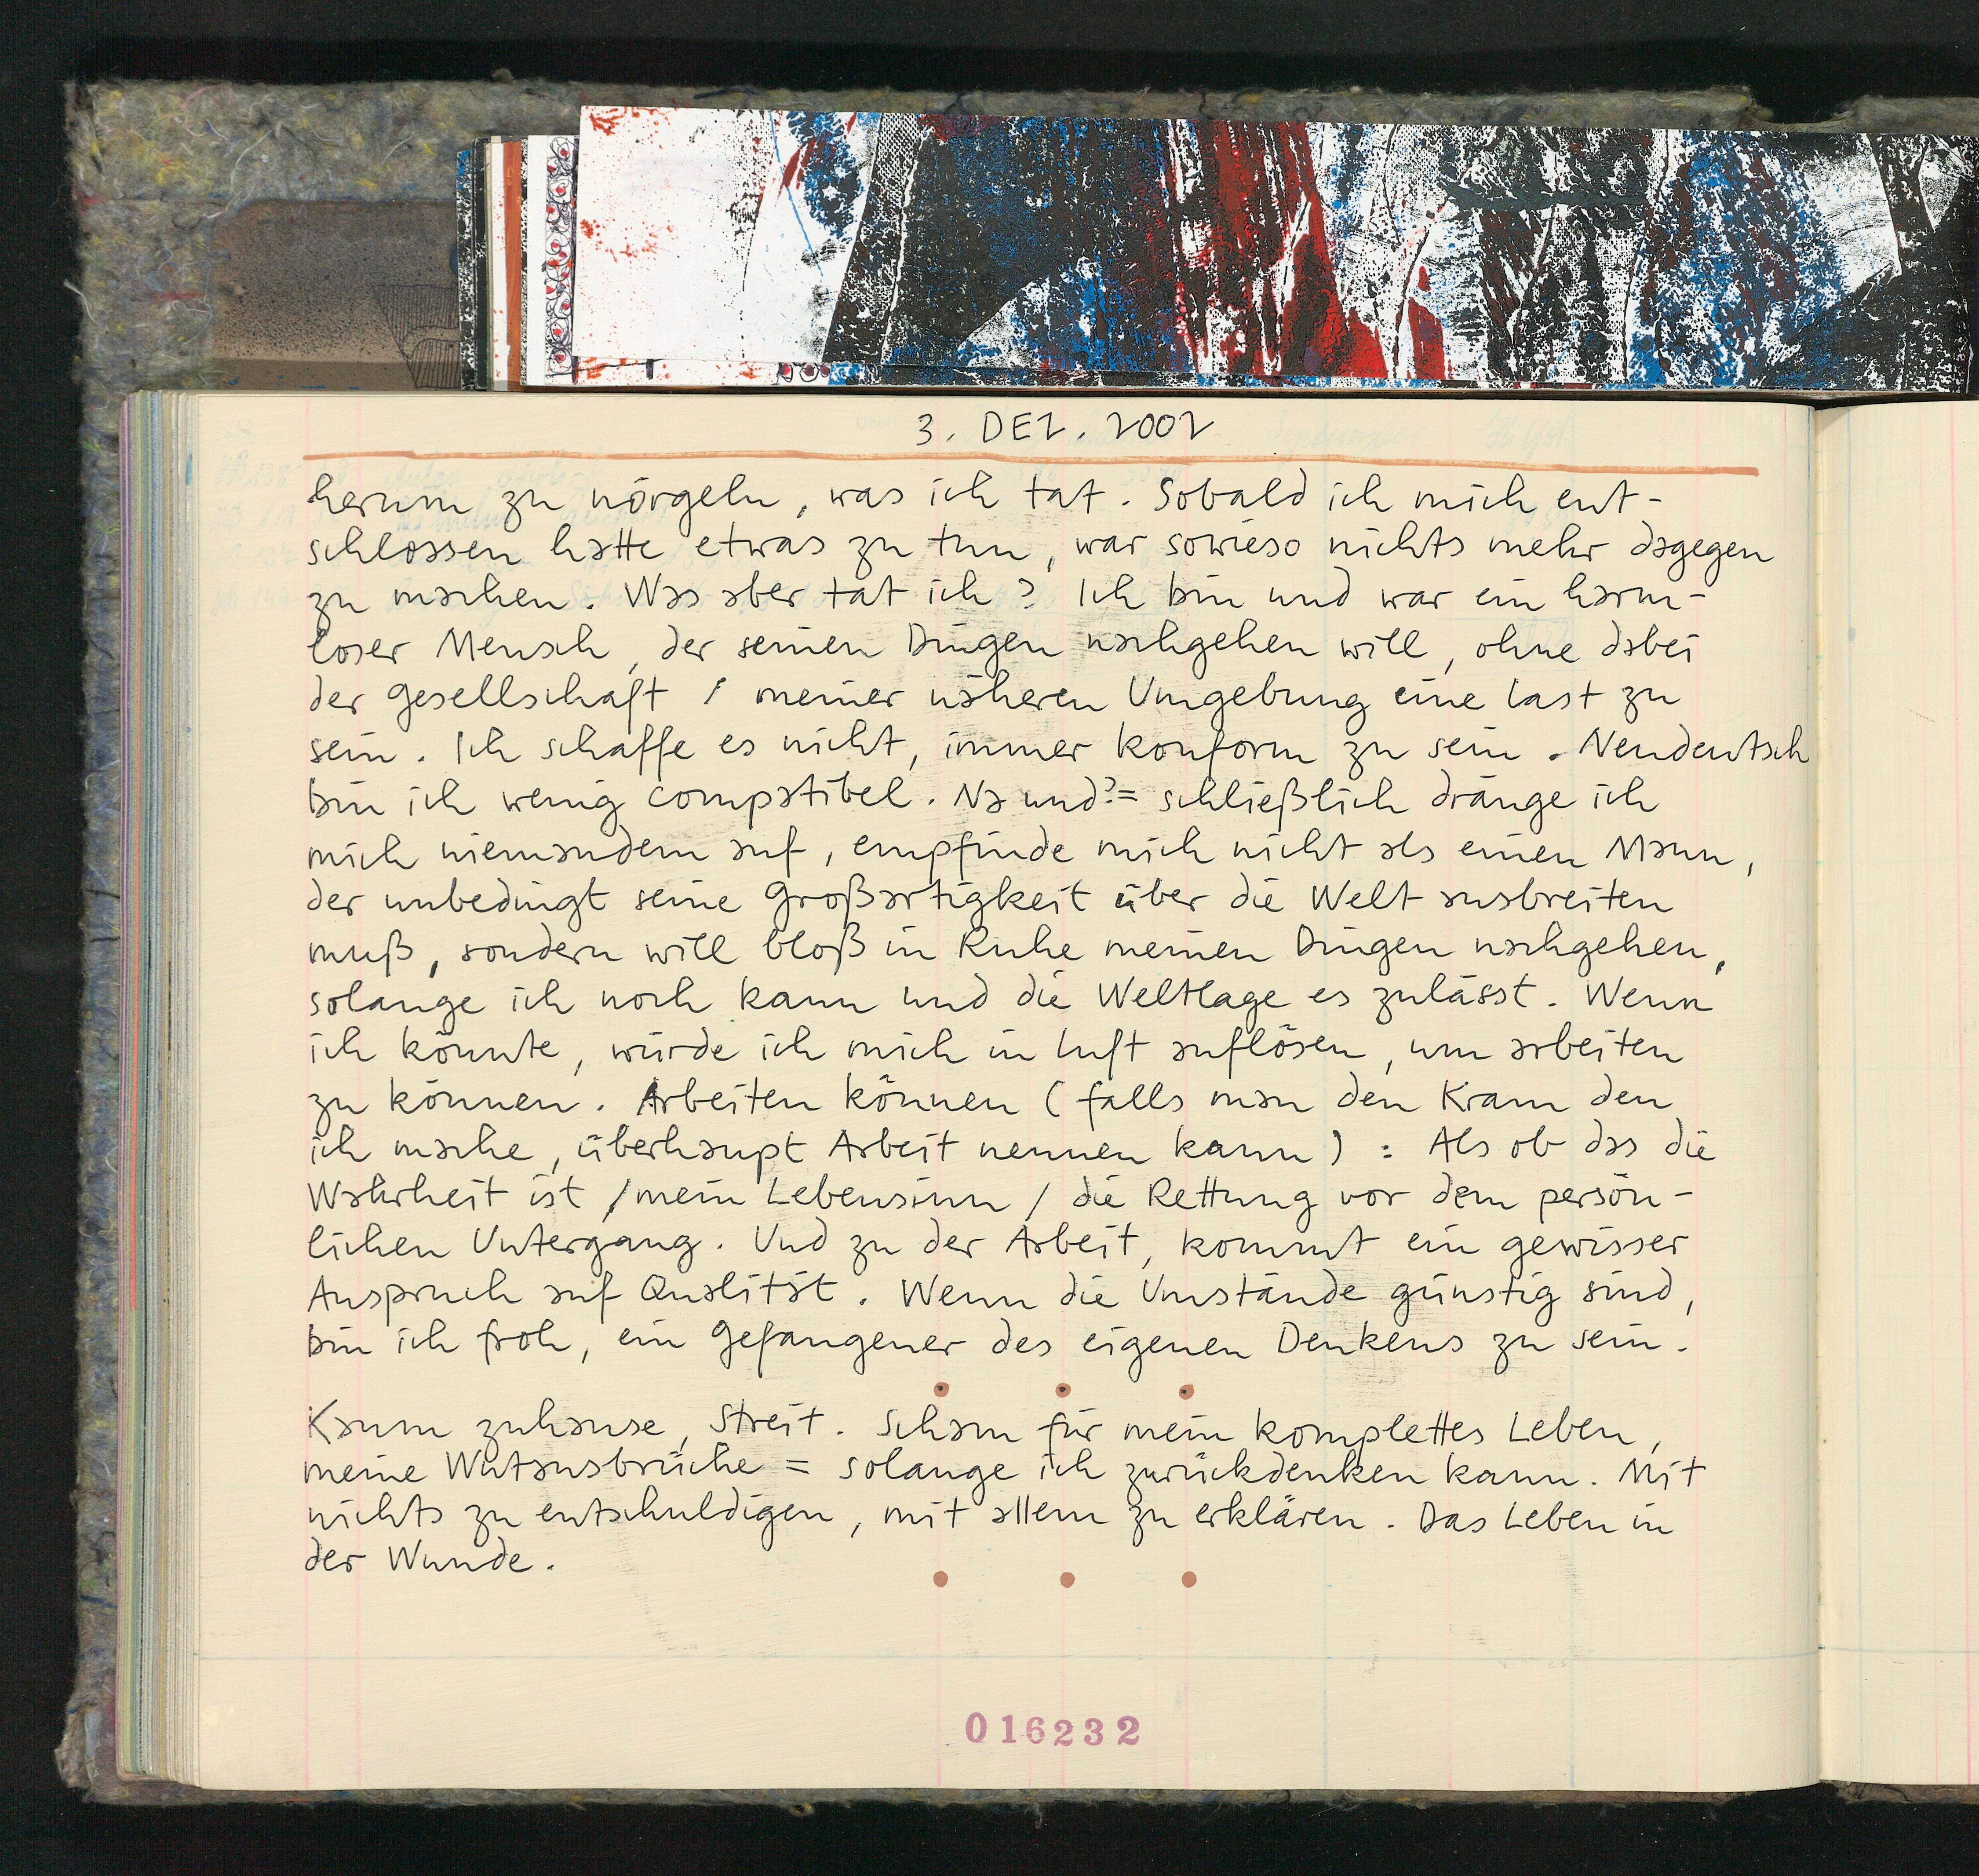 3. DEZ. 2002
herum zu nörgeln, was ich tat. Sobald ich mich ent-
schlossen hatte etwas zu tun, war sowieso nichts mehr dagegen
zu machen. Was aber tat ich? Ich bin und war ein harm-
loser Mensch, der seinen Dingen nachgehen will, ohne dabei
der Gesellschaft / meiner näheren Umgebung eine Last zu
sein. Ich schaffe es nicht, immer konform zu sein. Neudeutsch
bin ich wenig compatibel. Na und? = schließlich dränge ich
mich niemandem auf, empfinde mich nicht als einen Mann,
der unbedingt seine Großartigkeit über die Welt ausbreiten
muß, sondern will bloß in Ruhe meinen Dingen nachgehen,
solange ich noch kann und die Weltlage es zulässt. Wenn
ich könnte, würde ich mich in Luft auflösen, um arbeiten
zu können. Arbeiten können (falls man den Kram den
ich mache, überhaupt Arbeit nennen kann) : Als ob das die
Wahrheit ist / mein Lebensinn / die Rettung vor dem persön-
lichen Untergang. Und zu der Arbeit, kommt ein gewisser
Anspruch auf Qualität. Wenn die Umstände günstig sind,
bin ich froh, ein Gefangener des eigenen Denkens zu sein.
Kaum zuhause, Streit. Scham für mein komplettes Leben,
meine Wutausbrüche = solange ich zurückdenken kann. Mit
nichts zu entschuldigen, mit allem zu erklären. Das Leben in
der Wunde.
016232